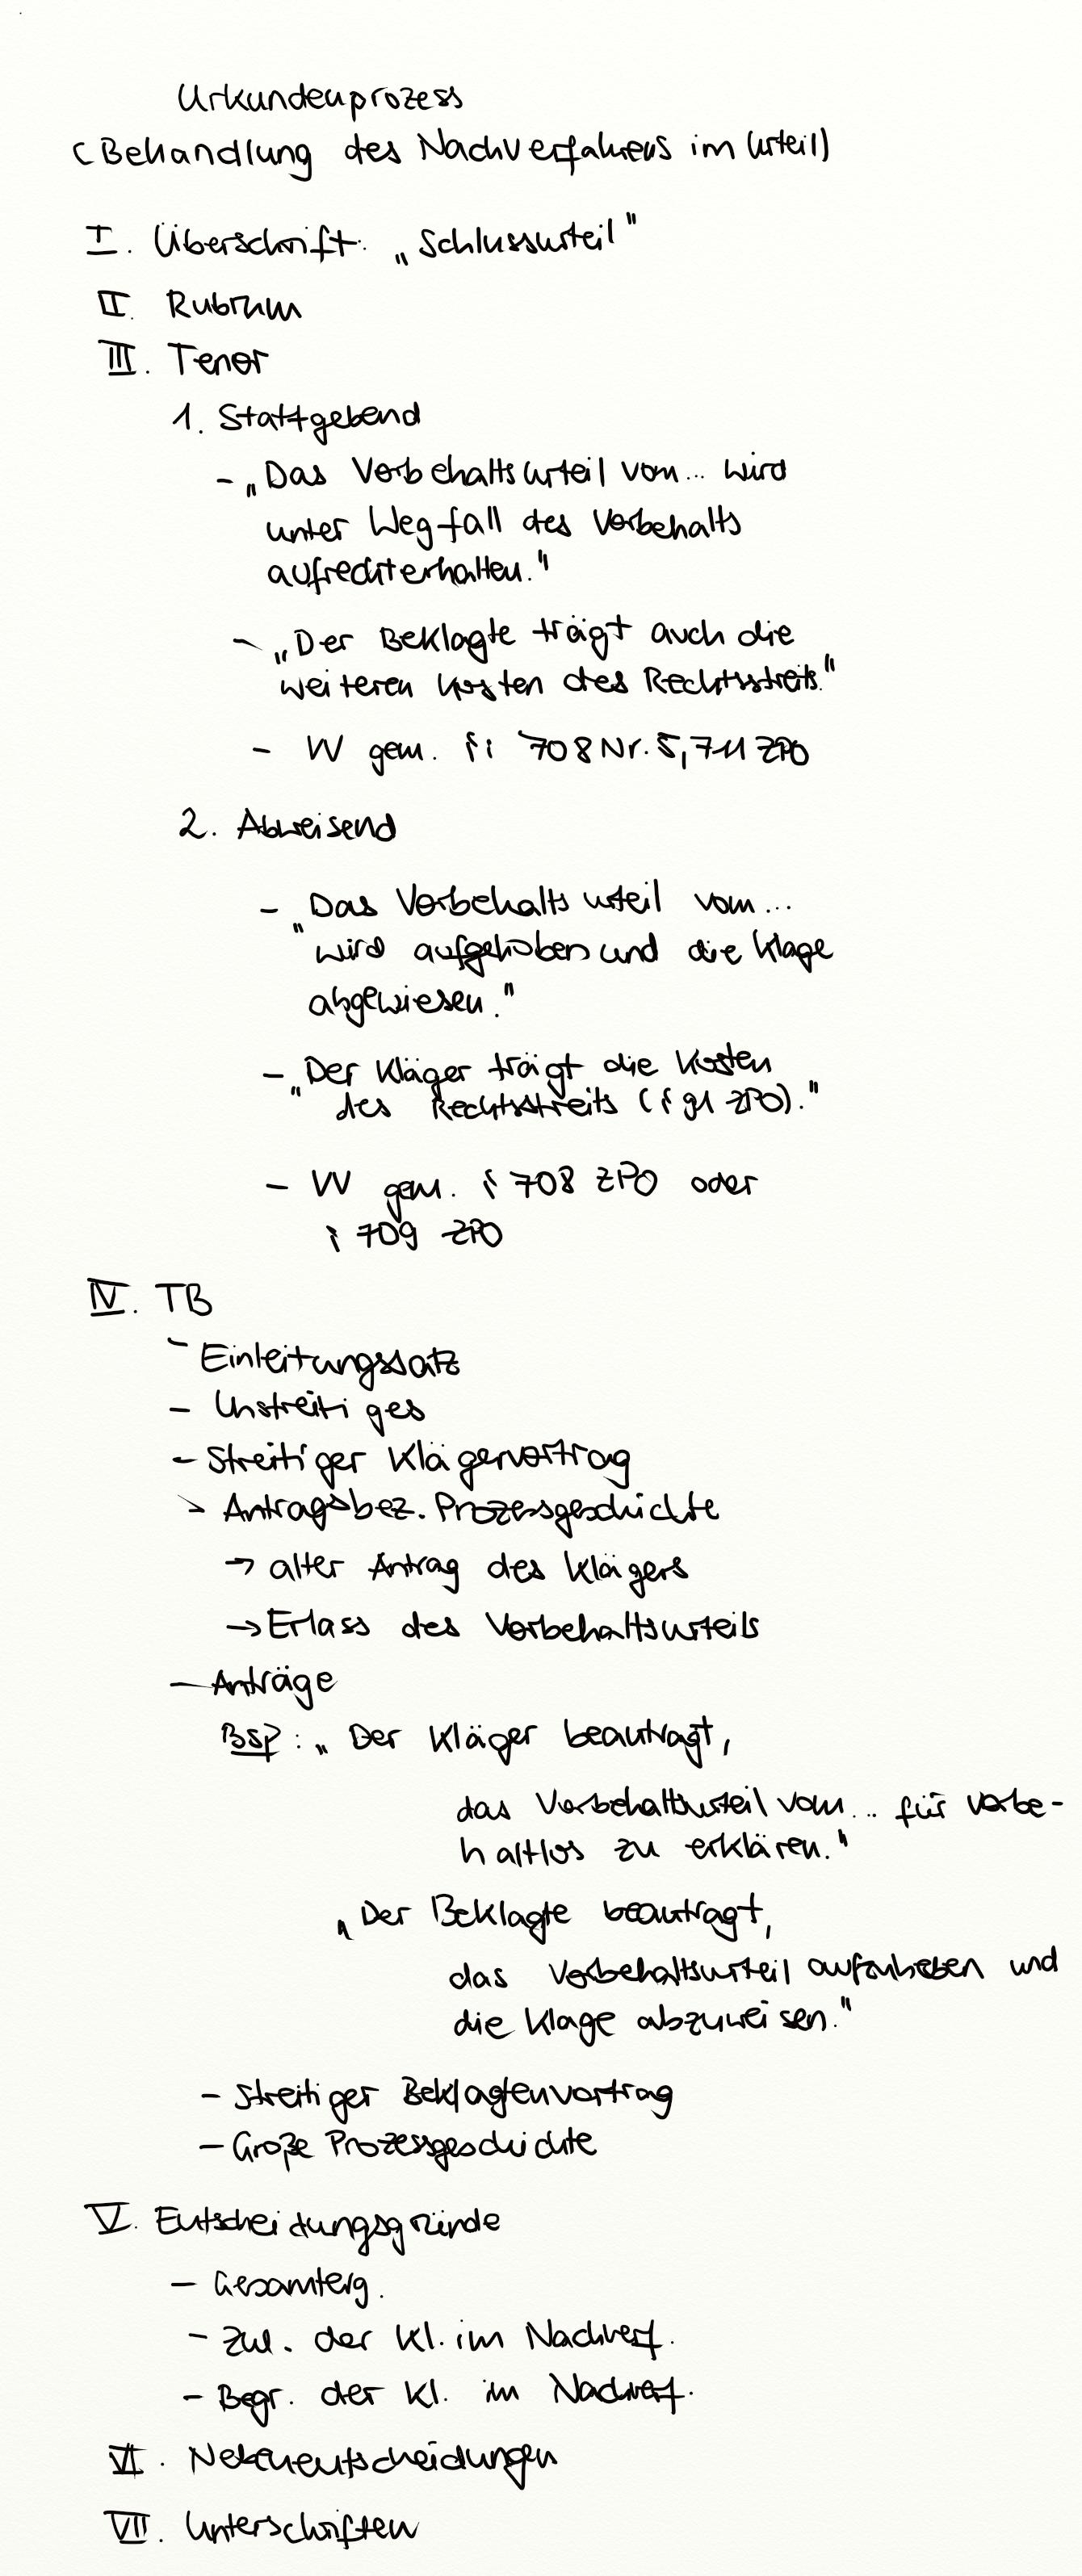 Urkundenprozess
(Behandlung des Nachverfahrens im Urteil)
I. Überschrift: „Schlussurteil"
II. Rubrum
III. Tenor
1. Stattgebend
- „Das Vorbehaltsurteil vom... wird
unter Wegfall des Vorbehalts
aufrechterhalten."
- „Der Beklagte trägt auch die
weiteren Kosten des Rechtsstreits."
- VV gem. §§ 708 Nr. 5, 711 ZPO
2. Abweisend
- „Das Vorbehaltsurteil vom...
wird aufgehoben und die Klage
abgewiesen."
- „Der Kläger trägt die Kosten
des Rechtsstreits (§ 91 ZPO)."
- VV gem. § 708 ZPO oder
§ 709 ZPO
IV. TB
- Einleitungssatz
- Unstreitiges
- Streitiger Klägervortrag
- Antragsbez. Prozessgeschichte
→ alter Antrag des Klägers
→ Erlass des Vorbehaltsurteils
- Anträge
Bsp: „Der Kläger beantragt,
das Vorbehaltsurteil vom... für vorbe-
haltlos zu erklären."
„Der Beklagte beantragt,
das Vorbehaltsurteil aufzuheben und
die Klage abzuweisen."
- Streitiger Beklagtenvortrag
- Große Prozessgeschichte
V. Entscheidungsgründe
- Gesamterg.
- Zul. der Kl. im Nachverf.
- Begr. der Kl. im Nachverf.
VI. Nebenentscheidungen
VII. Unterschriften